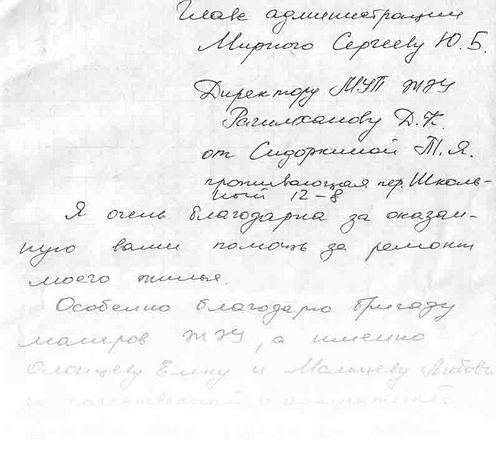 Главе администрации
Мирного Сергееву Ю.Б.
Директору МУП ЖЭУ
Рагилханову Д.К.
от Сидоркиной Т.Я.
проживающая пер. Школь-
ный 12-8
Я очень благодарна за оказан-
ную вами помощь за ремонт
моего жилья.
Особенно благодарю бригаду
маляров ЖЭУ, а именно
Елену и Мальцеву Любовь
за качественный и